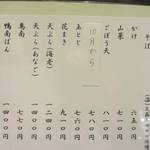 そば
かけ 六五〇
山菜
ごぼう天
10月から
玉とじ 七八〇
花まき 九一〇
天ぷら(海老) 一二四〇
天ぷら(あなご) 一四〇〇
鳥南 七七〇
鴨南ばん 一四〇〇